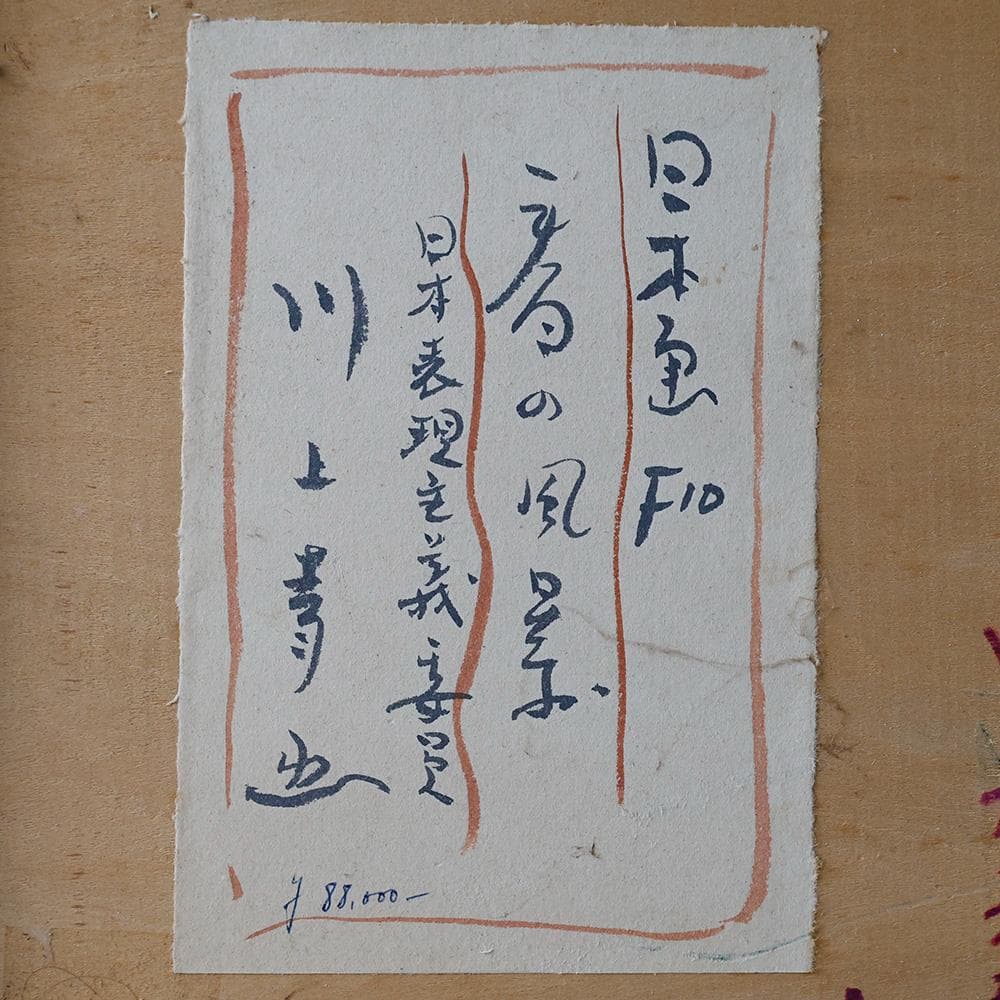 日本画 F10
春の風景
日本表現主義委員
川上青
¥88,000-